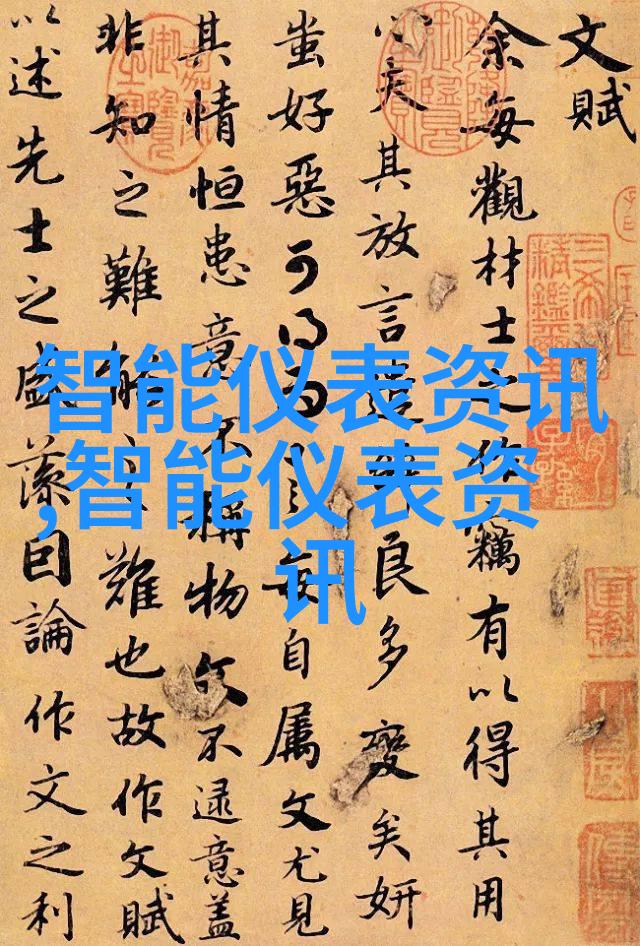 文賦
余每觀材士之作竊有以得其用
心夫其放言遣辭良多變矣妍
蚩好惡可得而言每自屬文尤見
其情恒患意不稱物文不逮意蓋
非知之難能之難也故作文賦
以述先士之盛藻因論作文之利
智能仪表资讯
,智能仪表资
讯